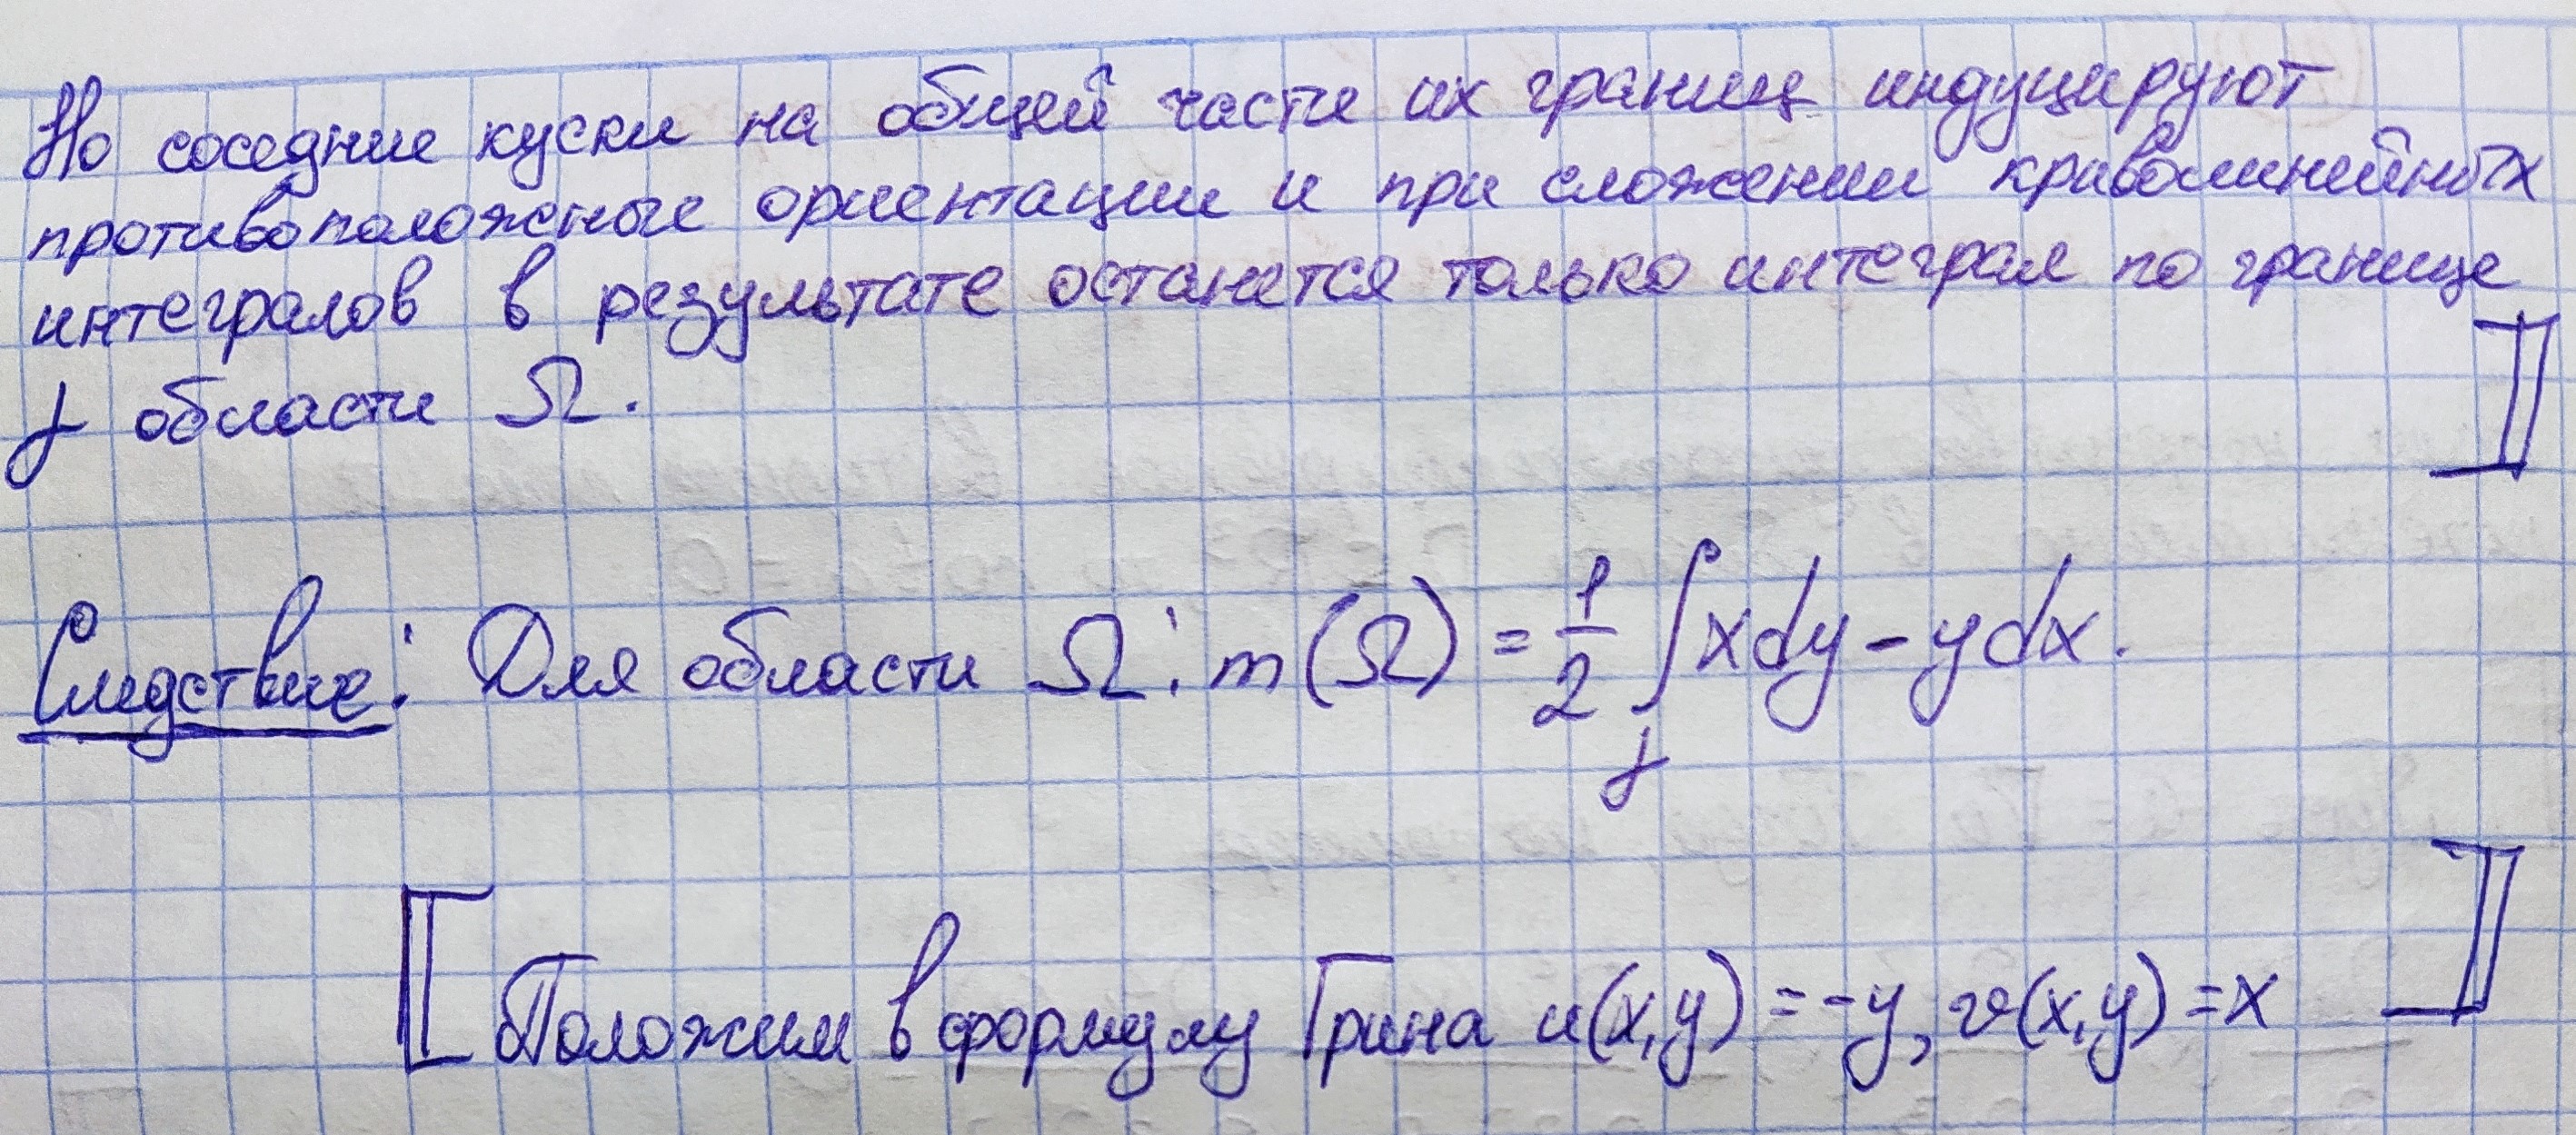 Но соседние куски на общей части их границ индуцируют
противоположные ориентации и при сложении криволинейных
интегралов в результате останется только интеграл по границе
γ области Ω. ⟧
Следствие: Для области Ω: m(Ω) = 1/2 ∫_γ xdy - ydx.
⟦ Положим в формулу Грина u(x,y) = -y, v(x,y) = x ⟧